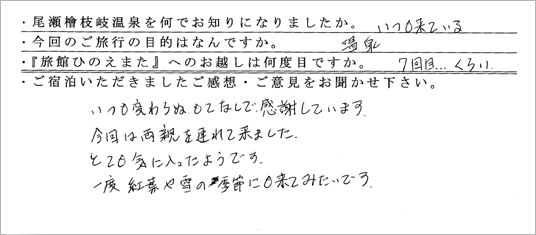 ・尾瀬檜枝岐温泉を何でお知りになりましたか。 いつも来ている
・今回のご旅行の目的はなんですか。 温泉
・『旅館ひのえまた』へのお越しは何度目ですか。 7回目…くらい
・ご宿泊いただきましたご感想・ご意見をお聞かせ下さい。
いつも変わらぬもてなしで感謝しています。
今回は両親を連れて来ました。
とても気に入ったようです。
一度 紅葉や雪の季節にも来てみたいです。